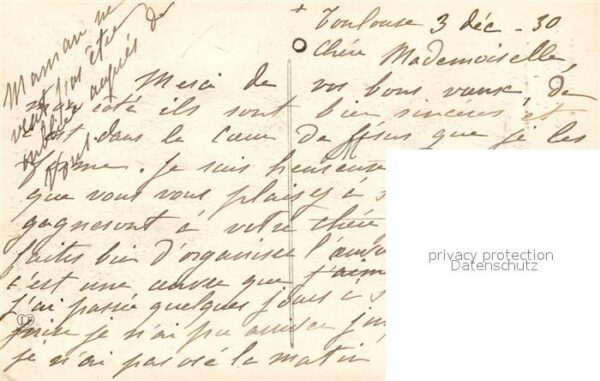 Toulouse 3 déc. 30
Chère Mademoiselle,
Merci de vos bons vœux, de
mon côté ils sont bien sincères, et
c'est dans le Cœur de Jésus que je les
forme. Je suis heureuse
que vous vous plaisiez à
gagneront à votre chère
faites bien d'organiser l'
c'est une œuvre que j'aim
j'ai passée quelques jours à
je n'ai pu
je n'ai pas osé le matin
Maman ne
veut pas être
oubliée auprès de
vous
privacy protection
Datenschutz